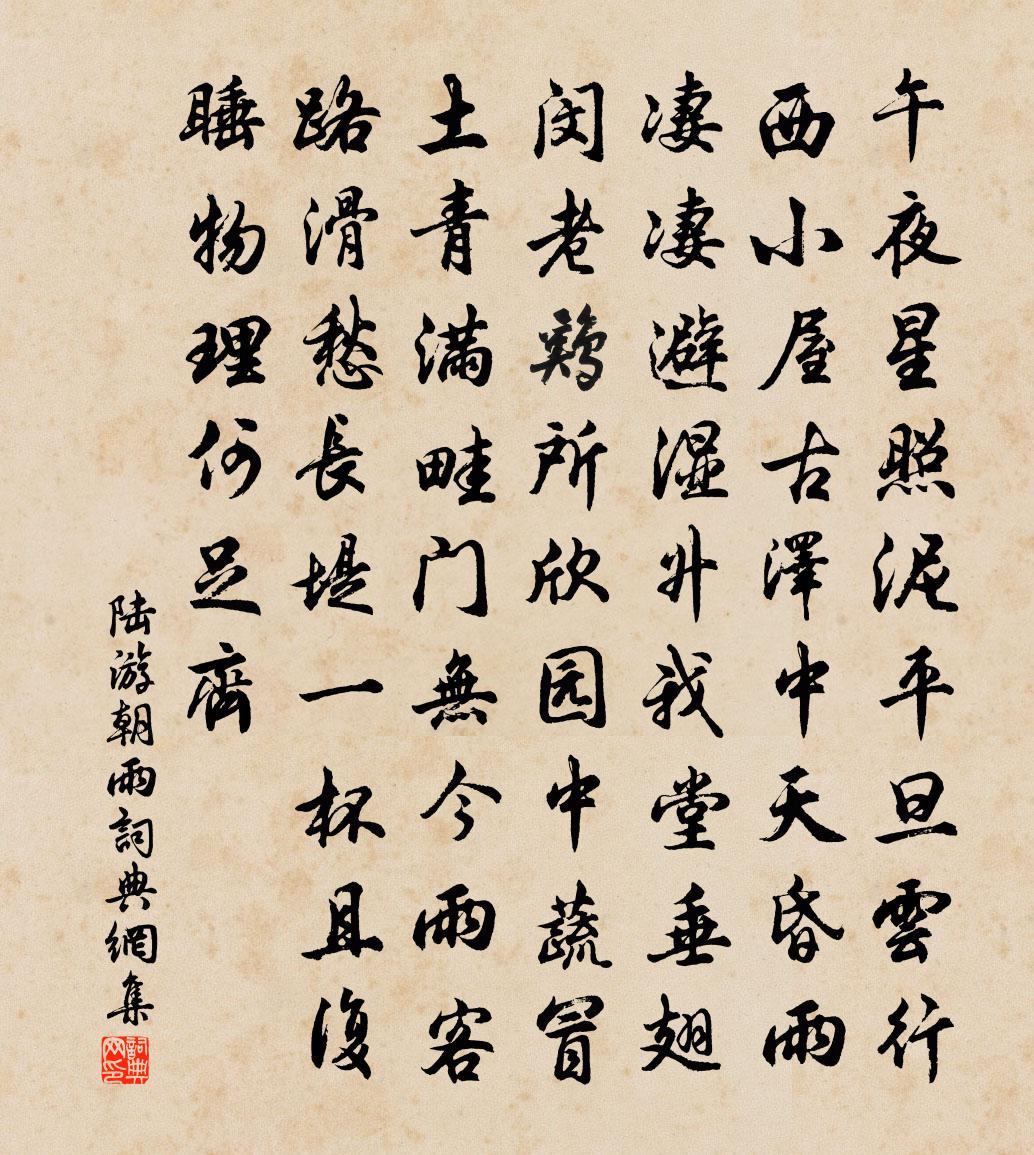 午夜星照泥平旦雲行
西小屋古澤中天昏雨
凄凄避湿升我堂垂翅
闵老鷄所欣园中蔬冒
土青滿畦门無今雨客
路滑愁長堤一杯且復
睡物理何足齊
陆游朝雨詞典網集
詞典网印